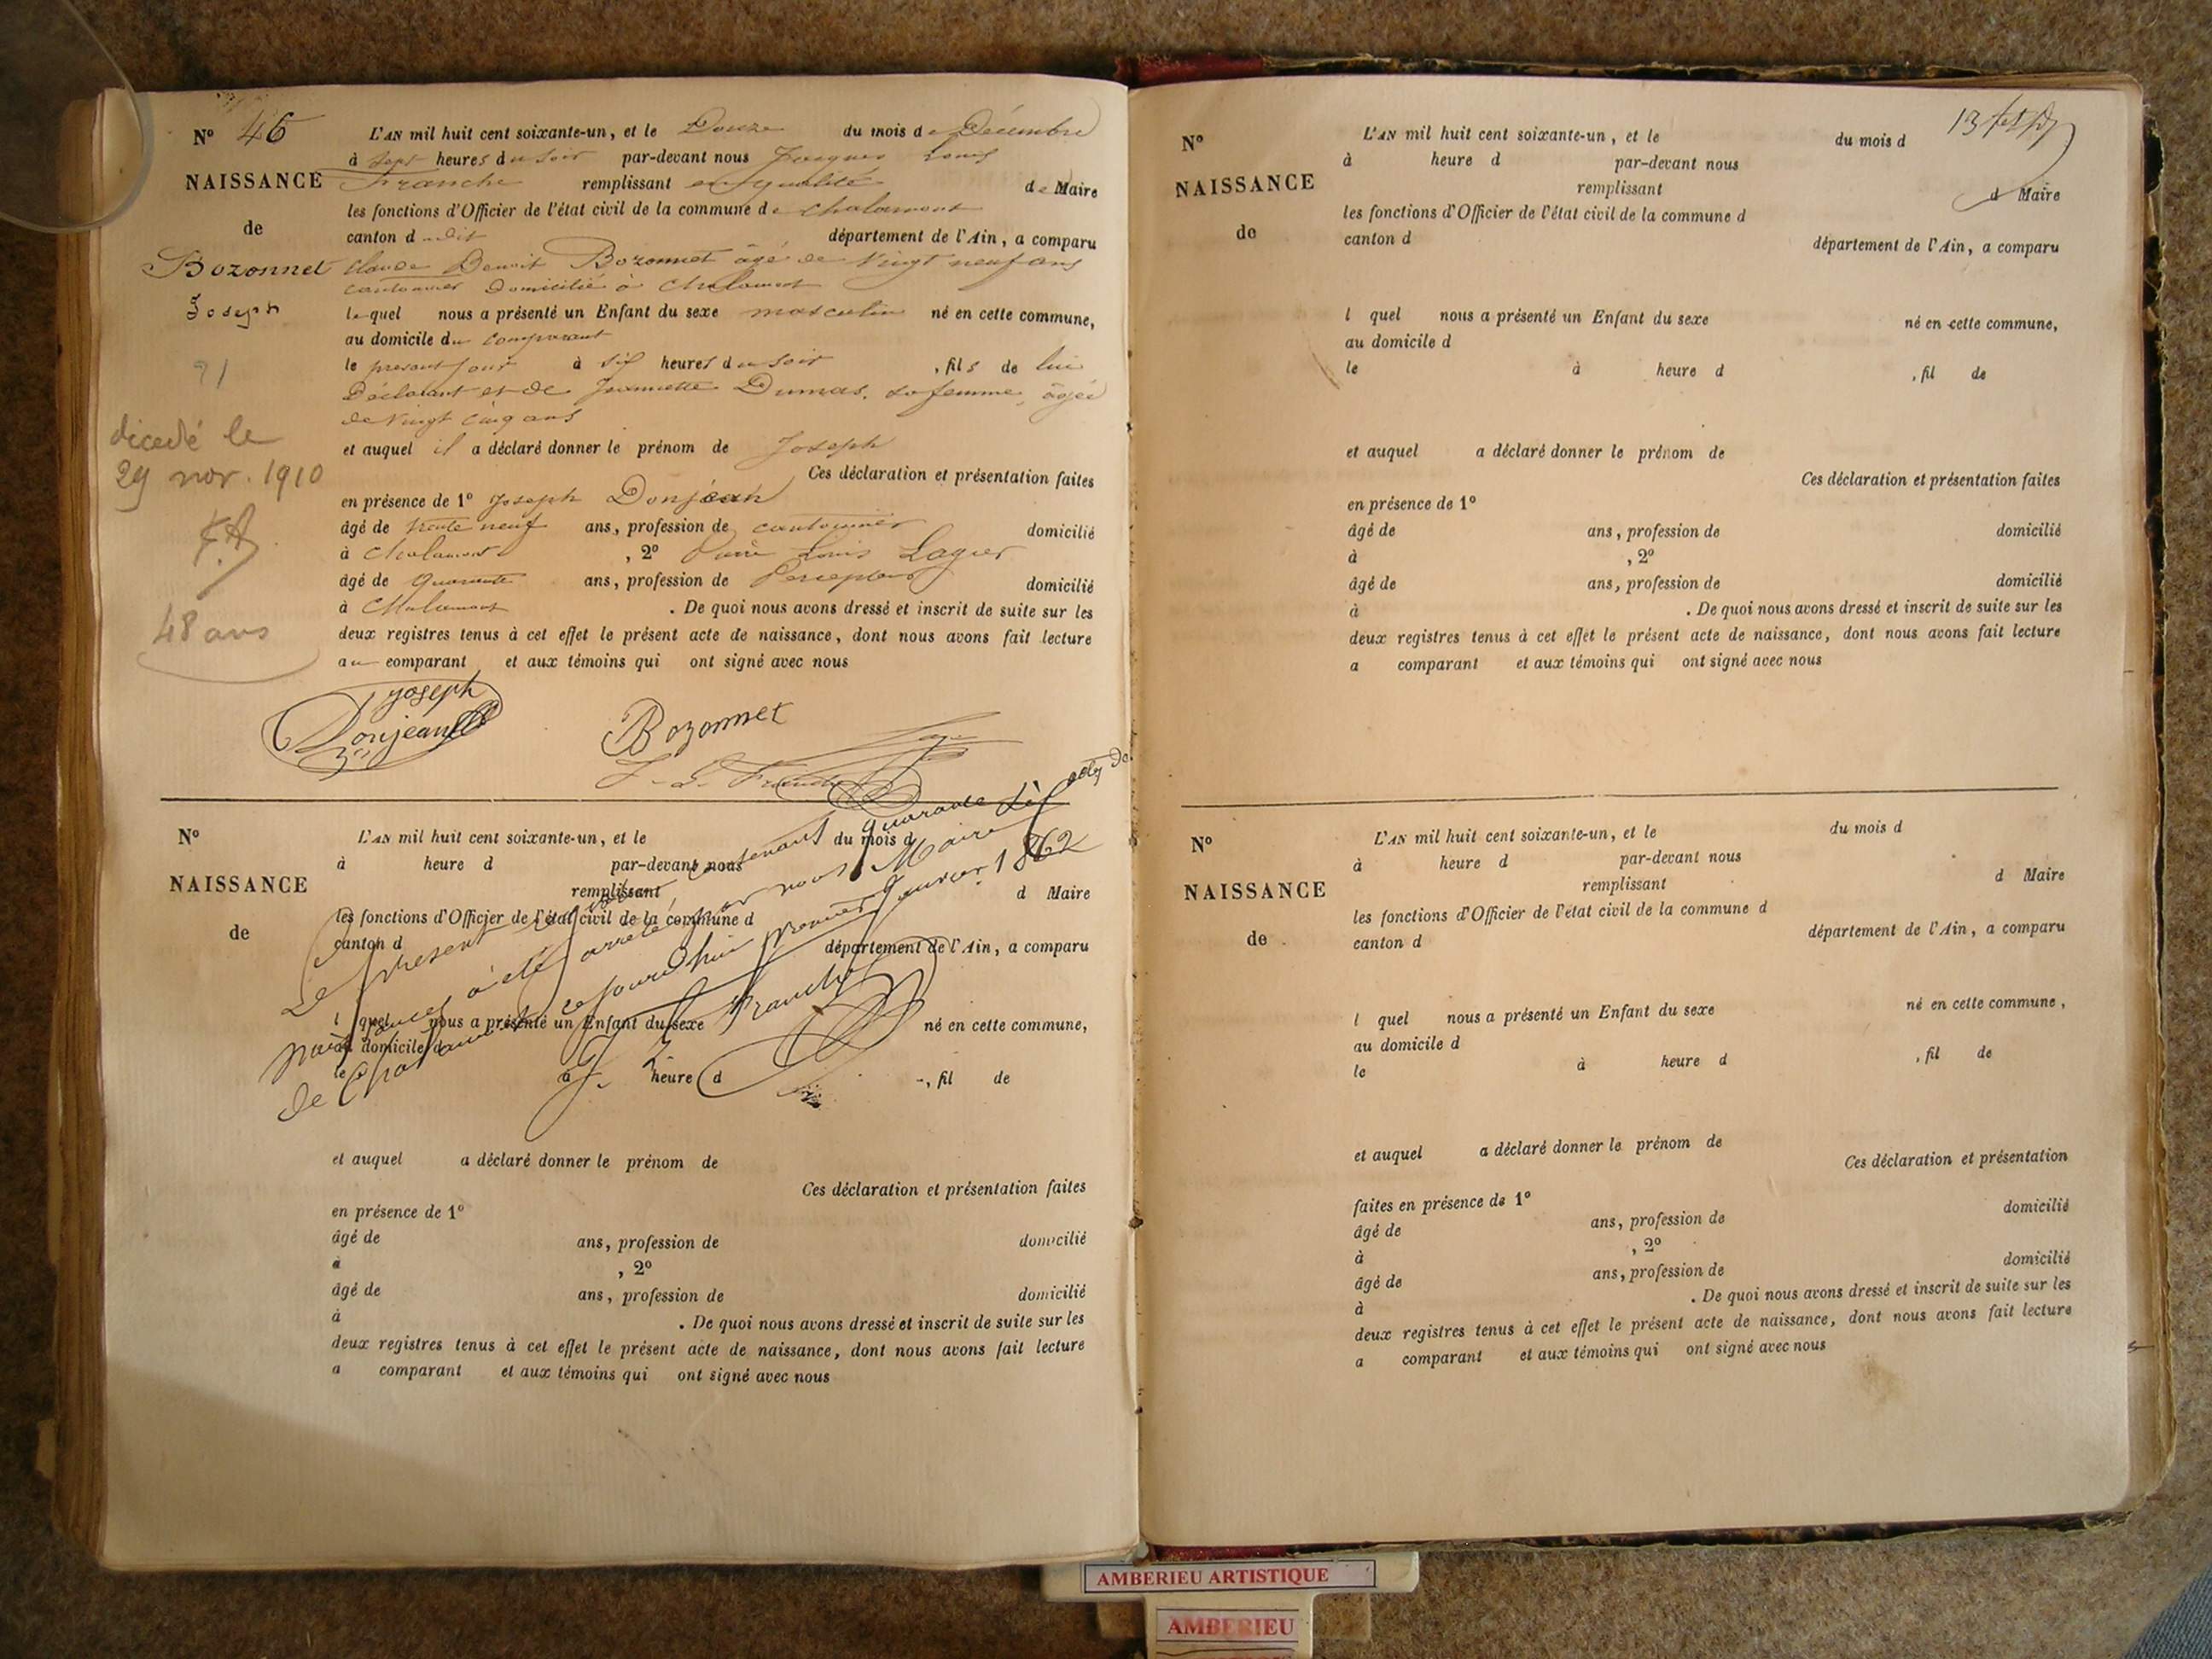 N° 46
L'AN mil huit cent soixante-un, et le Douze du mois de Décembre
à sept heures du soir par-devant nous Jacques Louis
NAISSANCE
Franche remplissant en qualité de Maire
les fonctions d'Officier de l'état civil de la commune de Chalamont
de
canton dudit département de l'Ain, a comparu
Bozonnet
Claude Benoit Bozonnet âgé de Vingt neuf ans
cantonnier Domicilié à Chalamont
Joseph
lequel nous a présenté un Enfant du sexe masculin né en cette commune,
au domicile du comparant
le present jour à six heures du soir, fils de lui
Déclarant et de Jeannette Dumas, sa femme, âgée
de Vingt cinq ans
décedé le
29 nov. 1910
48 ans
et auquel il a déclaré donner le prénom de Joseph
Ces déclaration et présentation faites
en présence de 1° Joseph Donjean
âgé de trente neuf ans, profession de cantonnier domicilié
à Chalamont, 2° Louis Lagier
âgé de quarante ans, profession de Percepteur domicilié
à Chalamont. De quoi nous avons dressé et inscrit de suite sur les
deux registres tenus à cet effet le présent acte de naissance, dont nous avons fait lecture
au comparant et aux témoins qui ont signé avec nous
Joseph
Donjean
Bozonnet
J. L. Franche
N°
L'AN mil huit cent soixante-un, et le du mois d
à heure d par-devant nous
NAISSANCE
remplissant d Maire
les fonctions d'Officier de l'état civil de la commune d
de
canton d département de l'Ain, a comparu
l quel nous a présenté un Enfant du sexe né en cette commune,
au domicile d
le à heure d , fil de
Le présent contenant quarante six actes de
naissances a été arrêté par nous Maire
de Chalamont ce jourd'hui premier janvier 1862
J. L. Franche
et auquel a déclaré donner le prénom de
Ces déclaration et présentation faites
en présence de 1°
âgé de ans, profession de domicilié
à , 2°
âgé de ans, profession de domicilié
à . De quoi nous avons dressé et inscrit de suite sur les
deux registres tenus à cet effet le présent acte de naissance, dont nous avons fait lecture
a comparant et aux témoins qui ont signé avec nous
13
N°
L'AN mil huit cent soixante-un, et le du mois d
à heure d par-devant nous
NAISSANCE
remplissant d Maire
les fonctions d'Officier de l'état civil de la commune d
de
canton d département de l'Ain, a comparu
l quel nous a présenté un Enfant du sexe né en cette commune,
au domicile d
le à heure d , fil de
et auquel a déclaré donner le prénom de
Ces déclaration et présentation faites
en présence de 1°
âgé de ans, profession de domicilié
à , 2°
âgé de ans, profession de domicilié
à . De quoi nous avons dressé et inscrit de suite sur les
deux registres tenus à cet effet le présent acte de naissance, dont nous avons fait lecture
a comparant et aux témoins qui ont signé avec nous
N°
L'AN mil huit cent soixante-un, et le du mois d
à heure d par-devant nous
NAISSANCE
remplissant d Maire
les fonctions d'Officier de l'état civil de la commune d
de
canton d département de l'Ain, a comparu
l quel nous a présenté un Enfant du sexe né en cette commune,
au domicile d
le à heure d , fil de
et auquel a déclaré donner le prénom de
Ces déclaration et présentation
faites en présence de 1° domicilié
âgé de ans, profession de
à , 2° domicilié
âgé de ans, profession de
à . De quoi nous avons dressé et inscrit de suite sur les
deux registres tenus à cet effet le présent acte de naissance, dont nous avons fait lecture
a comparant et aux témoins qui ont signé avec nous
AMBERIEU ARTISTIQUE
AMBERIEU